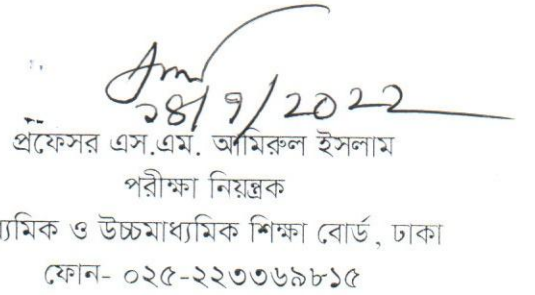 ২৪/9/2022
প্রফেসর এস.এম. আমিরুল ইসলাম
পরীক্ষা নিয়ন্ত্রক
ও উচ্চমাধ্যমিক শিক্ষা বোর্ড, ঢাকা
ফোন- ০২৫-২২৩৩৬৯৮১৫